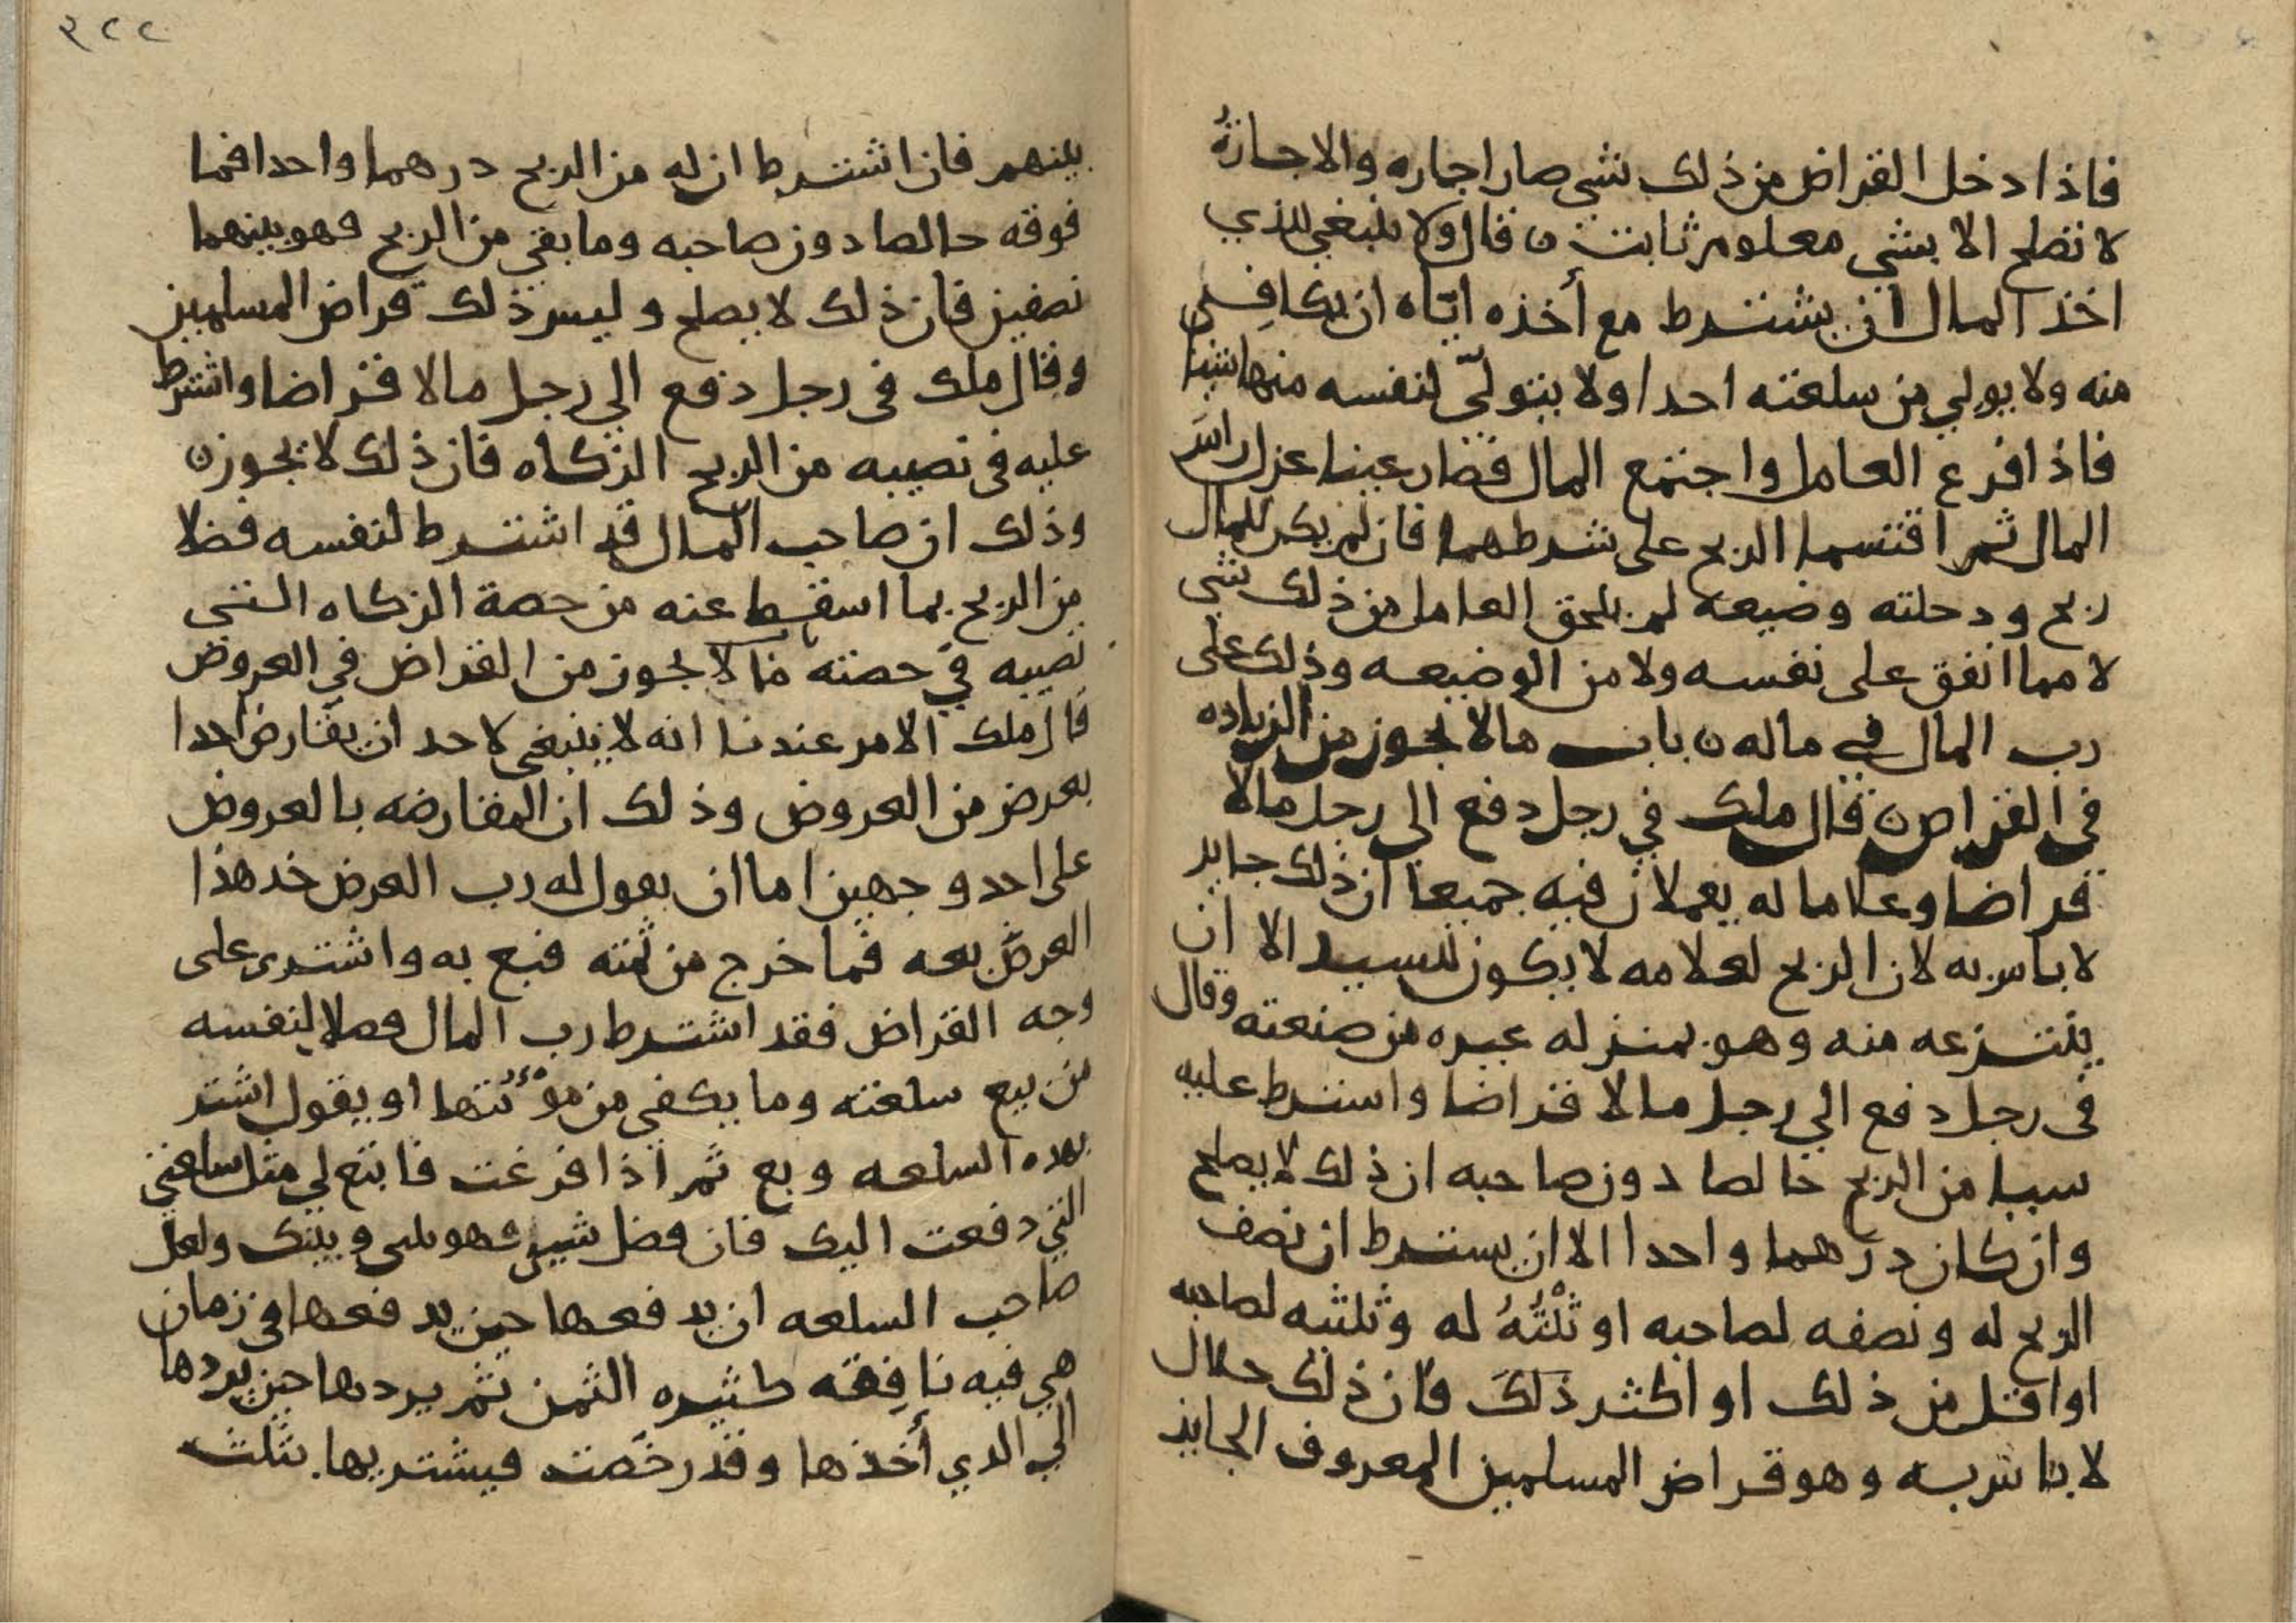 فاذا دخل القراض من ذلك شي صار اجاره والاجارةُ
لا تصلح الا بشي معلوم ثابت ن قال ولا ينبغي للذي
اخذ المال ان يشترط مع أخذه اياه ان يكافِي
منه ولا يولي من سلعته احدا ولا يتولّي لنفسه منها شيا
فاذا فرع العامل واجتمع المال فصار عينا عزل راس
المال ثم اقتسما الربح على شرطهما فان لم يكن للمال
ربح ودخلته وضيعه لم يلحق العامل من ذلك شي
لا مما انفق على نفسه ولا من الوضيعه وذلك على
رب المال في ماله ن باب مالا يجوز من الزياده
في القراض ن قال ملك في رجل دفع الى رجل مالا
قراضا وغلاما له يعملان فيه جميعا ان ذلك جايز
لا باس به لان الربح لغلامه لا يكون للسيد الا ان
ينتزعه منه وهو بمنزله غيره من صنعته وقال
في رجل دفع الي رجل مالا قراضا واشترط عليه
شيا من الربح خالصا دون صاحبه ان ذلك لا يصلح
وان كان درهما واحدا الا ان يشترط ان نصف
الربح له ونصفه لصاحبه او ثلثُهُ له وثلثيه لصاحبه
او اقل من ذلك او اكثر ذلكَ فان ذلك حلال
لا باس به وهو قراض المسلمين المعروف الجايز
٣٢٢
بينهم فان اشترط ان له من الربح درهما واحدا فما
فوقه خالصا دون صاحبه وما بقي من الربح فهو بينهما
نصفين فان ذلك لا يصلح وليس ذلك قراض المسلمين
وقال ملك في رجل دفع الي رجل مالا قراضا واشترط
عليه في نصيبه من الربح الزكاه فان ذلك لا يجوز ن
وذلك ان صاحب المال قد اشترط لنفسه فضلا
من الربح بما اسقط عنه من حصة الزكاه التي
نصيبه في حصته ما لا يجوز من القراض في العروض
قال ملك الامر عندنا انه لا ينبغي لاحد ان يقارض احدا
بعرض من العروض وذلك ان المقارضه بالعروض
على احد وجهين اما ان يقول له رب العرض خذ هذا
العرض بعه فما خرج من ثمنه فبع به واشترى على
وجه القراض فقد اشترط رب المال فضلا لنفسه
من بيع سلعته وما يكفي من مؤنتها او يقول اشتر
بهده السلعه وبع ثم اذا فرغت فابتع لي مثل سلعتي
التي دفعت اليك فان فضل شيئ فهو بيني وبينك ولعل
صاحب السلعه ان يدفعها حين يدفعها في زمان
هي فيه نافِقه كثيره الثمن ثم يردها حين يردها
الي الدي أخذها وقد رخصت فيشتريها بثلث